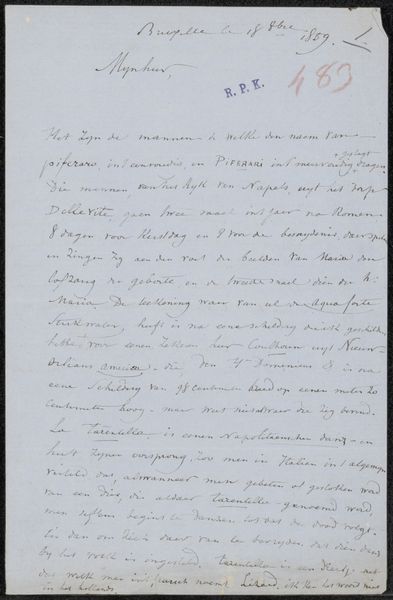 Bruxelles le 18 8bre 1859. 1.
Mynheer,
R. P. K.
483
Het zyn de mannen de welke den naem van
piferaro, int eenvoudig en PIFERARI int meervoudig dragen
Die mannen, van het Ryk van Napels, uyt het dorp
gaen twee mael int jaer na Romen
8 dagen voor Kersdag en 8 voor de daer spelen
en zingen zy aen den voet der beelden van Maria den
lofzang de geborte en de tweede mael dien der h.
Maria. De teekening waer van ul de aqua forte
Sterkwater, heeft is na eene schildery die ik geschildert
hebbe voor eenen zekeren heer Couthoun uyt Nieuw
Orleans america, die den is na
eene Schildery van 98 centimeters breed op eenen meter 20
centimeters hoog - maer wat nu waer die zig bevind.
La tarentella is eenen Napolitaenschen danz - en
heeft zynen oorsprong, zoo men in Italien int algemeyn
verteld dat, alswanneer men gebeten of gestoken word
van een dier, die aldaer tarentelle genoemd word,
men tot dat de dood volgt.
is dan om hier daer van te bevryden dat dien danz
by het volk is ingesteld. tarentella is een met
dat welk men int fransch noemt Lézard. ik ken het woord niet
in het hollands.